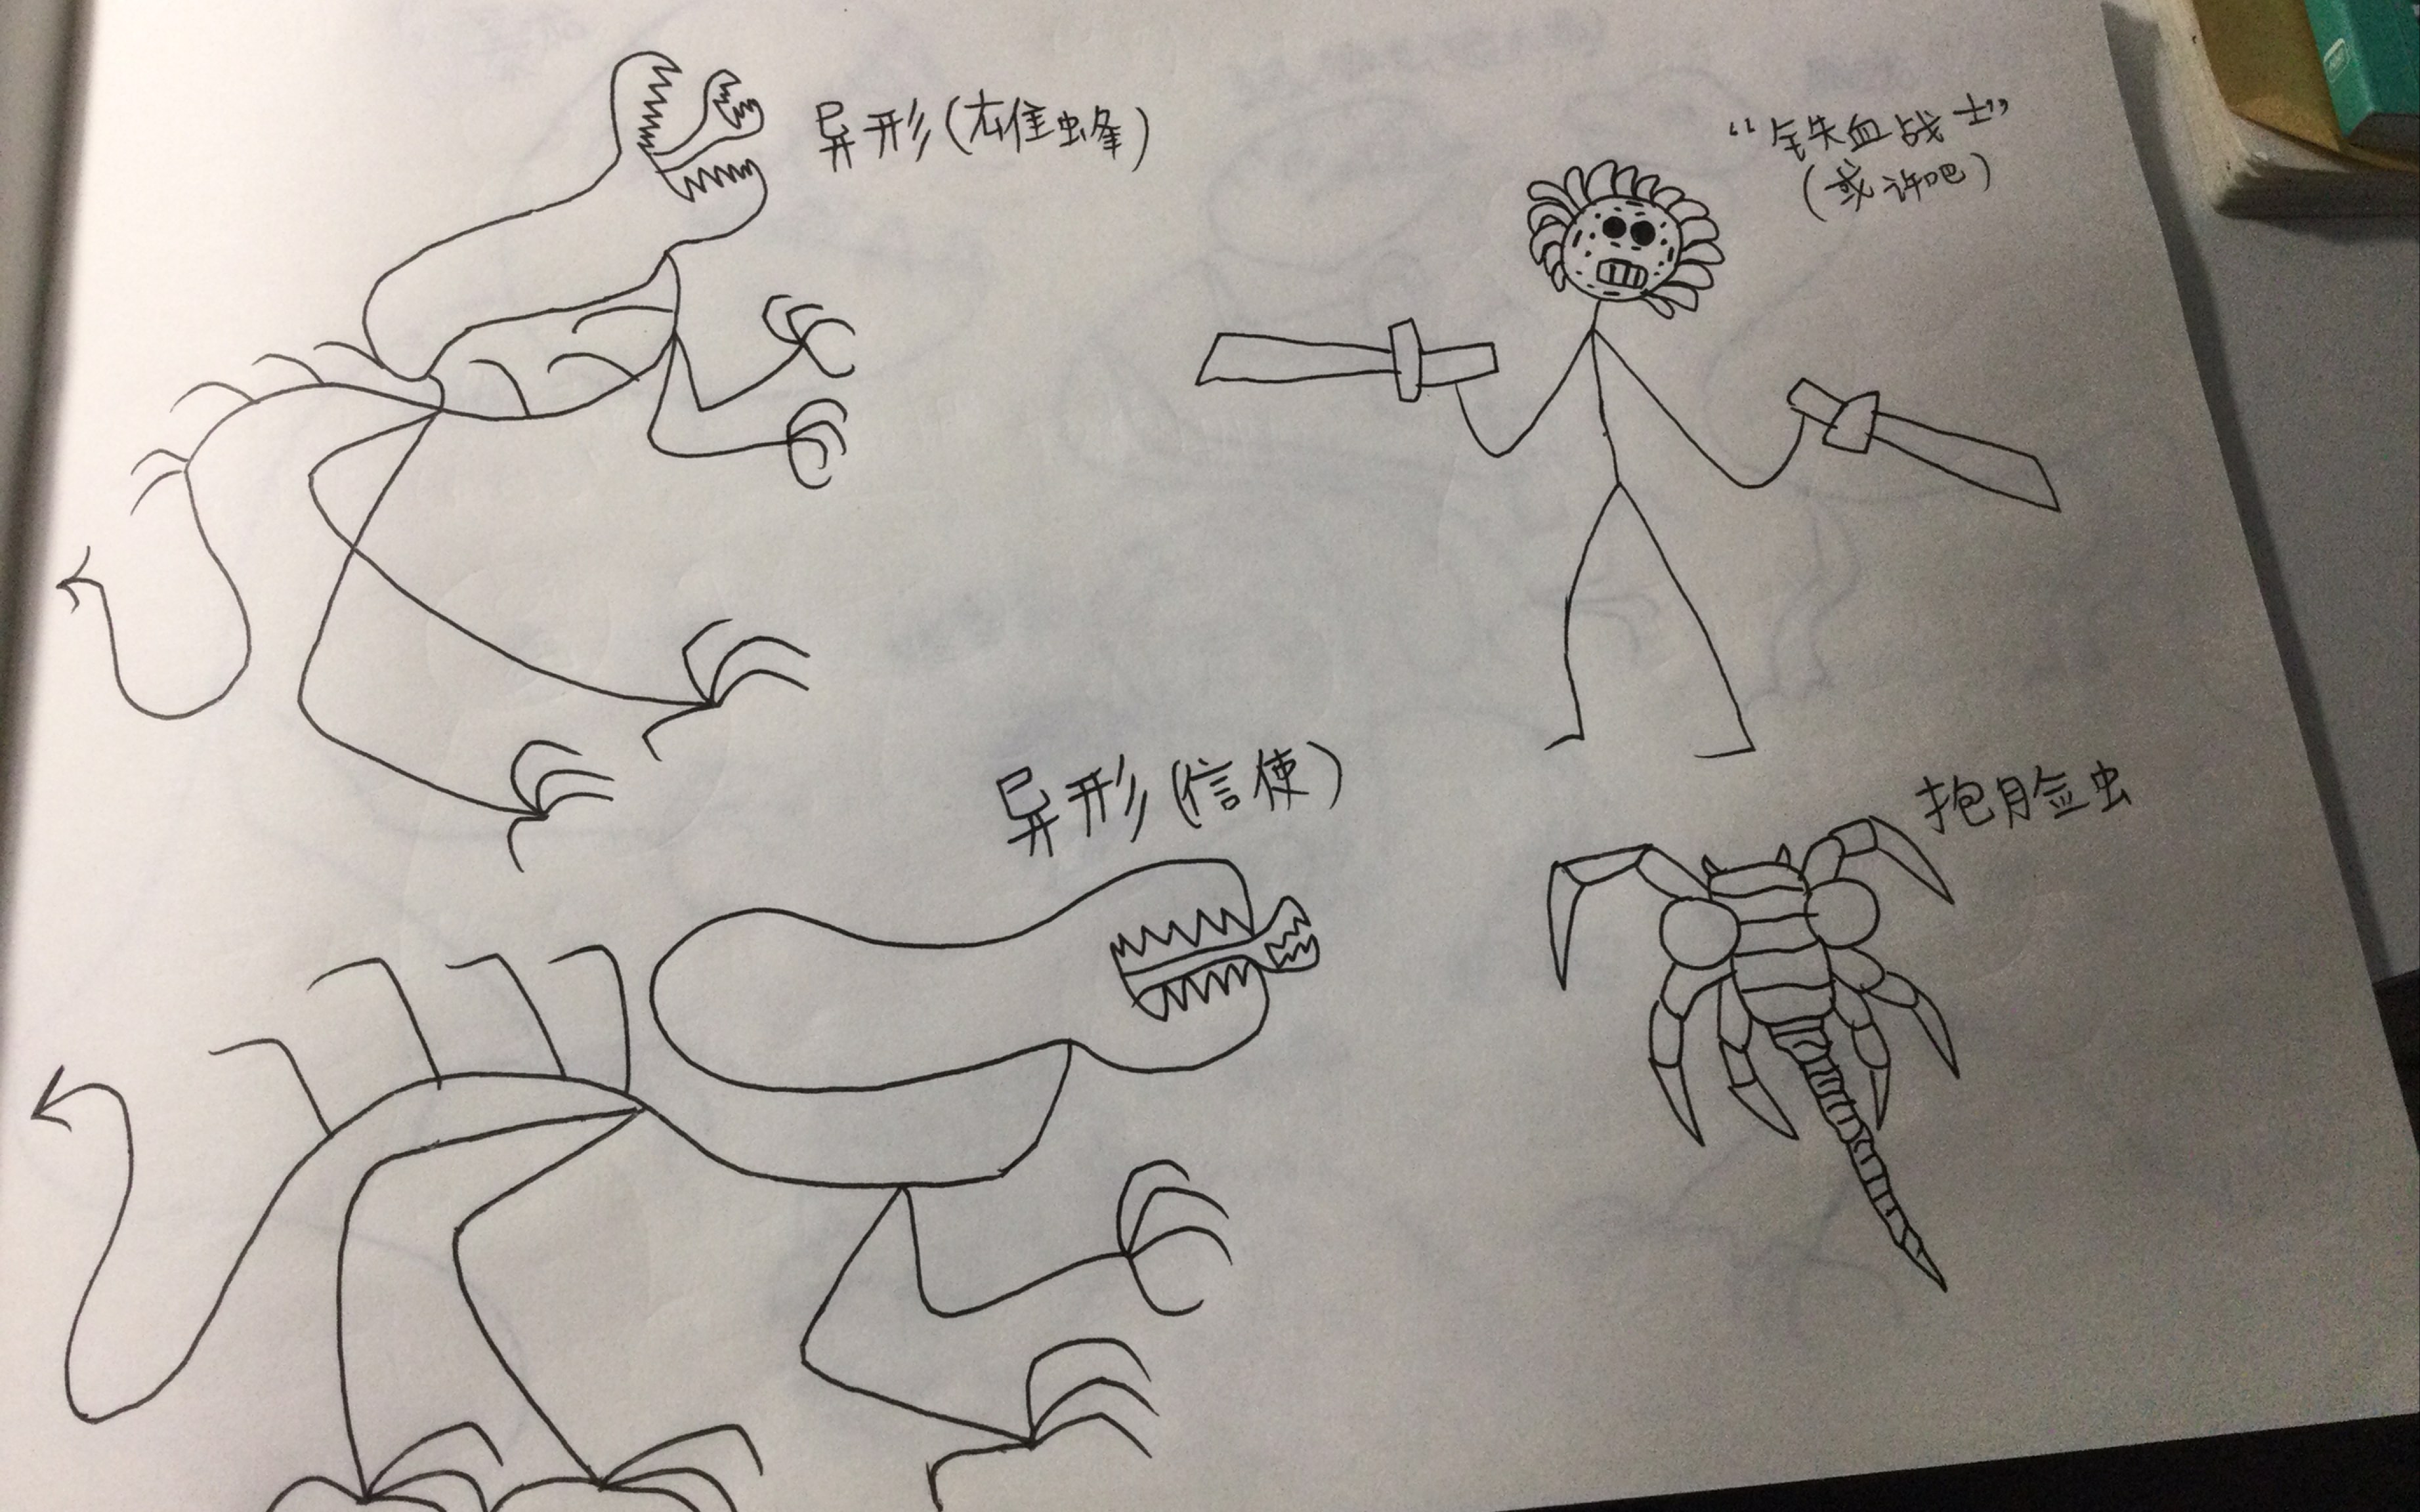 异形(雄蜂)
“铁血战士”
(或许吧)
异形(信使)
抱脸虫